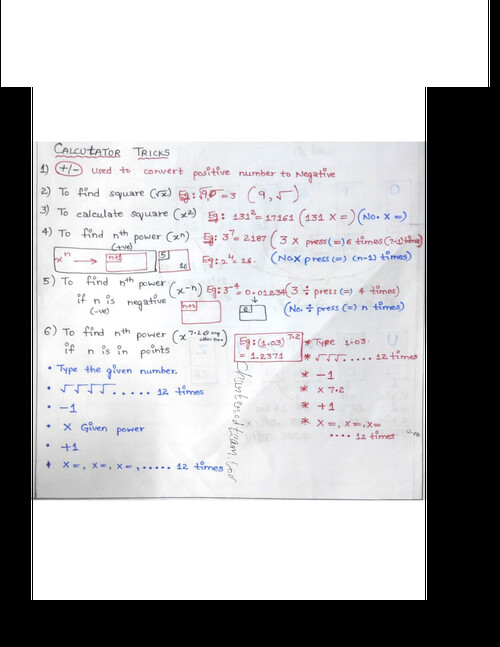 CALCULATOR TRICKS
1) +/- used to convert positive number to Negative
2) To find square (√x) Eg: √9 = 3 (9, √)
3) To calculate square (x²) Eg: 131² = 17161 (131 X =) (No. X =)
4) To find nth power (xⁿ) Eg: 3⁷ = 2187 (3 X press (=) 6 times (7-1) times)
(+ve)
xⁿ → n+1 5 16 Eg: 2⁴ = 16. (No X press (=) (n-1) times)
5) To find nth power (x⁻ⁿ) Eg: 3⁻⁴ = 0.01234 (3 ÷ press (=) 4 times)
if n is negative n+2 6 (No. ÷ press (=) n times)
(-ve)
6) To find nth power (x^7.2 or any other nos)
if n is in points
Eg: (1.03)^7.2
= 1.2371
• Type the given number.
• √√√√ ..... 12 times
• -1
• X Given power
• +1
• X=, X=, X=, ..... 12 times
* Type 1.03
* √√√√ ..... 12 times
* -1
* X 7.2
* +1
* X=, X=, X=
.... 12 times